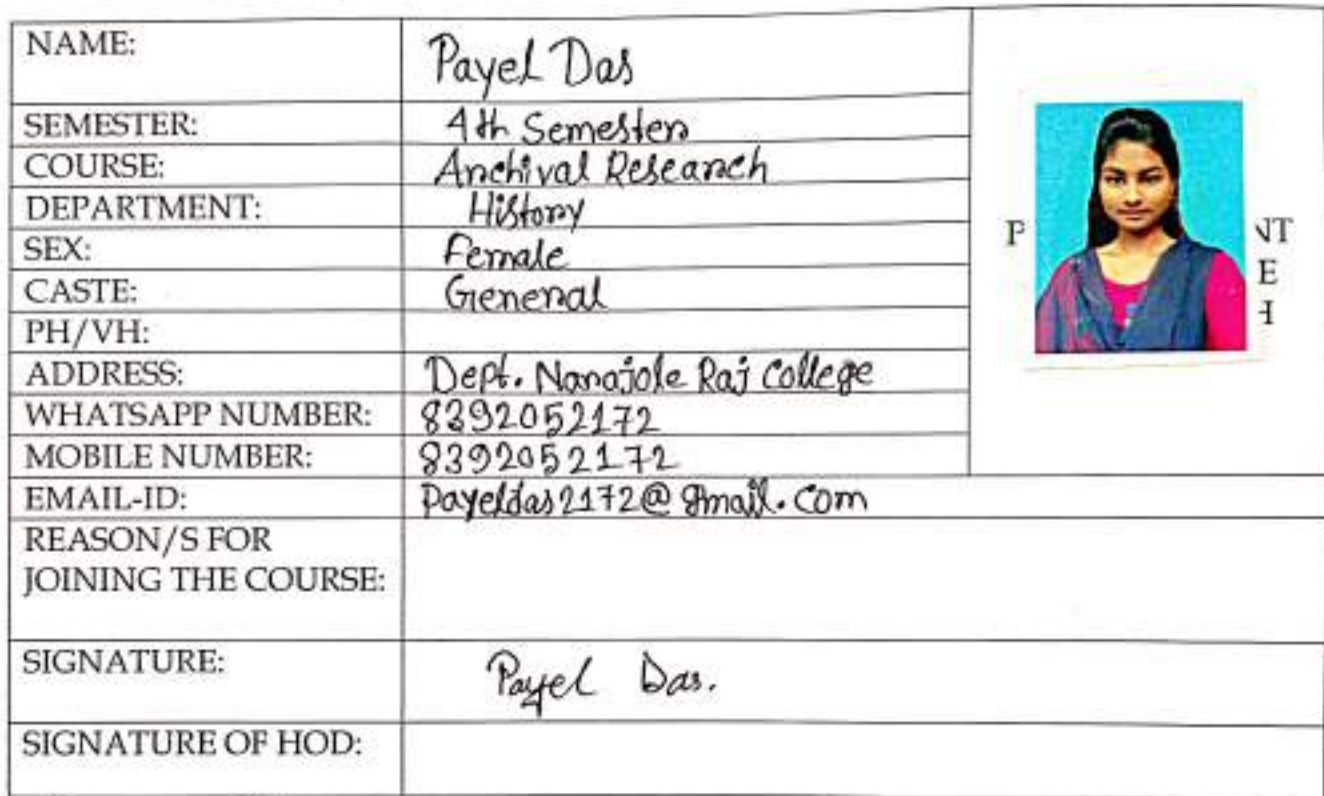 NAME: Payel Das
SEMESTER: 4th Semester
COURSE: Archival Research
DEPARTMENT: History
SEX: Female
CASTE: General
PH/VH:
ADDRESS: Dept. Narajole Raj College
WHATSAPP NUMBER: 8392052172
MOBILE NUMBER: 8392052172
EMAIL-ID: Payeldas2172@gmail.com
REASON/S FOR
JOINING THE COURSE:
SIGNATURE: Payel Das.
SIGNATURE OF HOD: